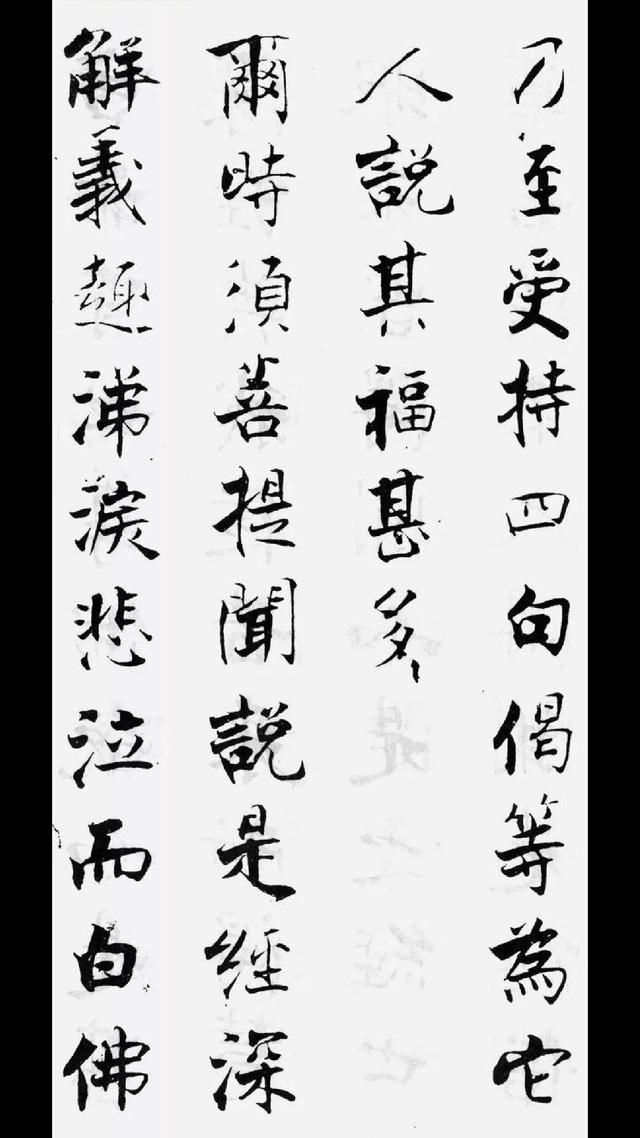 乃至受持四句偈等為它
人說其福甚多
爾時須菩提聞說是經深
解義趣涕淚悲泣而白佛